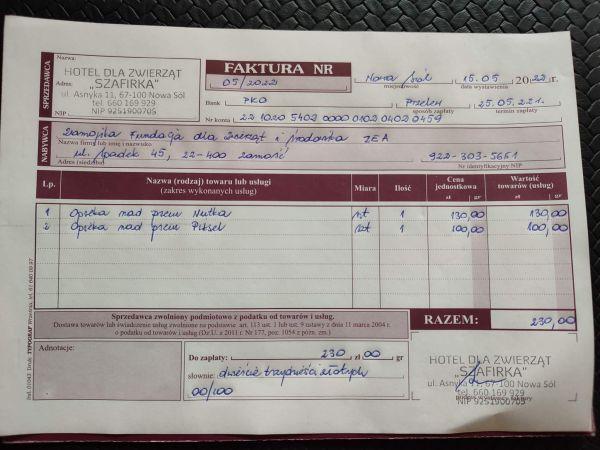 SPRZEDAWCA
Nazwa:
HOTEL DLA ZWIERZĄT
Adres: "SZAFIRKA"
ul. Asnyka 11, 67-100 Nowa Sól
tel. 660 169 929
NIP 9251900705
FAKTURA NR
05/2022
Nowa Sól 15.05 2022 r.
miejscowość data wystawienia
Bank PKO Przelew 25.05.22r.
sposób zapłaty termin zapłaty
Nr konta 22 1020 5402 0000 0102 0402 0459
NABYWCA
Zamojska Fundacja dla Zwierząt i Środowiska ZEA
Nazwa firmy lub imię i nazwisko
ul. Spadek 45, 22-400 Zamość 922-303-5661
Adres (siedziba) Nr identyfikacyjny NIP
Lp. Nazwa (rodzaj) towaru lub usługi (zakres wykonanych usług) Miara Ilość Cena jednostkowa zł gr Wartość towarów (usług) zł gr
1 Opieka nad psem Nutka szt 1 130,00 130,00
2 Opieka nad psem 1 100,00 100,00
Sprzedawca zwolniony podmiotowo z podatku od towarów i usług.
Dostawa towarów lub świadczenie usług zwolnione na podstawie art. 113 ust. 1 lub ust. 9 ustawy z dnia 11 marca 2004 r.
o podatku od towarów i usług (Dz.U. z 2011 r. Nr 177, poz. 1054 z późn. zm.)
RAZEM: 230,00
Adnotacje:
Do zapłaty: 230 zł 00 gr
słownie: dwieście trzydzieści złotych
00/100
HOTEL DLA ZWIERZĄT
"SZAFIRKA"
ul. Asnyka 11, 67-100 Nowa Sól
tel. 660 169 929
NIP 9251900705